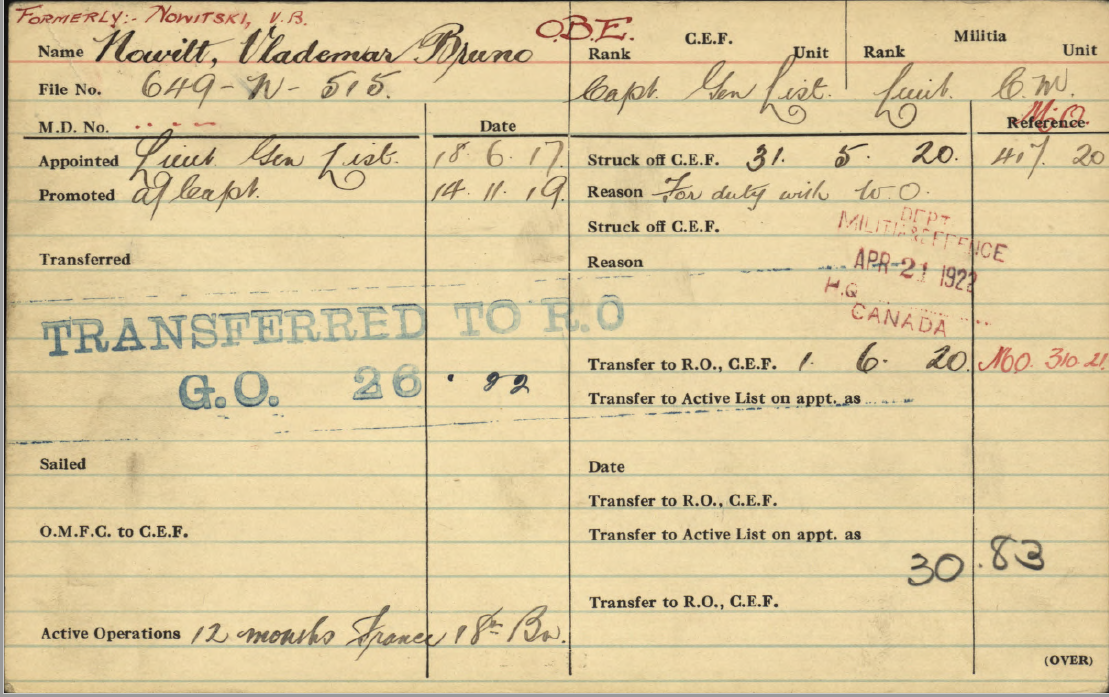 FORMERLY:- NOWITSKI, V.B.
O.B.E.
C.E.F. Militia
Name Nowitt, Vlademar Bruno Rank Unit Rank Unit
File No. 649-N-515 Capt. Gen List. Lieut. C.M.
M.D. No. Date Reference
Appointed Lieut Gen List. 18.6.17. Struck off C.E.F. 31. 5. 20. 417. 20
Promoted a/Capt. 14.11.19. Reason For duty with W.O.
Struck off C.E.F.
DEPT.
MILITIA & DEFENCE
Transferred Reason
APR-21 1922
H.Q.
CANADA
TRANSFERRED TO R.O
Transfer to R.O., C.E.F. 1. 6. 20. 310 21.
G.O. 26 . 22
Transfer to Active List on appt. as
Sailed Date
Transfer to R.O., C.E.F.
O.M.F.C. to C.E.F. Transfer to Active List on appt. as
30.83
Transfer to R.O., C.E.F.
Active Operations 12 months France 18th Bn.
(OVER)